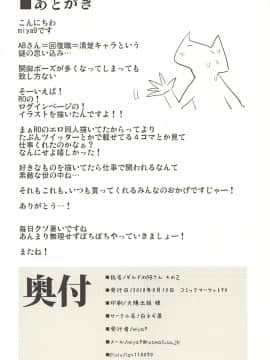 ■あとがき
こんにちわ
miya9です
ABさん＝回復職＝清楚キャラという
謎の思い込み…
開脚ポーズが多くなってしまっても
致し方ない
そーいえば！
ROの！
ログインページの！
イラストを描いたんですよ！！
まぁROのエロ同人描いてたからってより
たぶんツイッターとかで載せてる４コマとか見て
仕事くれたのかなぁ？
なんにせよ嬉しかった！
好きなものを描いてたら仕事で関われるなんて
素敵な世の中だね
それもこれも、いつも買ってくれるみんなのおかげですじゃー！
ありがとう…！
毎日クソ暑いですね
あんまり無理せずぼちぼちやっていきましょー！
またね！
奥付
■誌名/ギルドのABさん その2
■発行日/2018年8月10日 コミックマーケット94
■印刷/大陽出版 様
■サークル名/白ネギ屋
■発行者/miya9